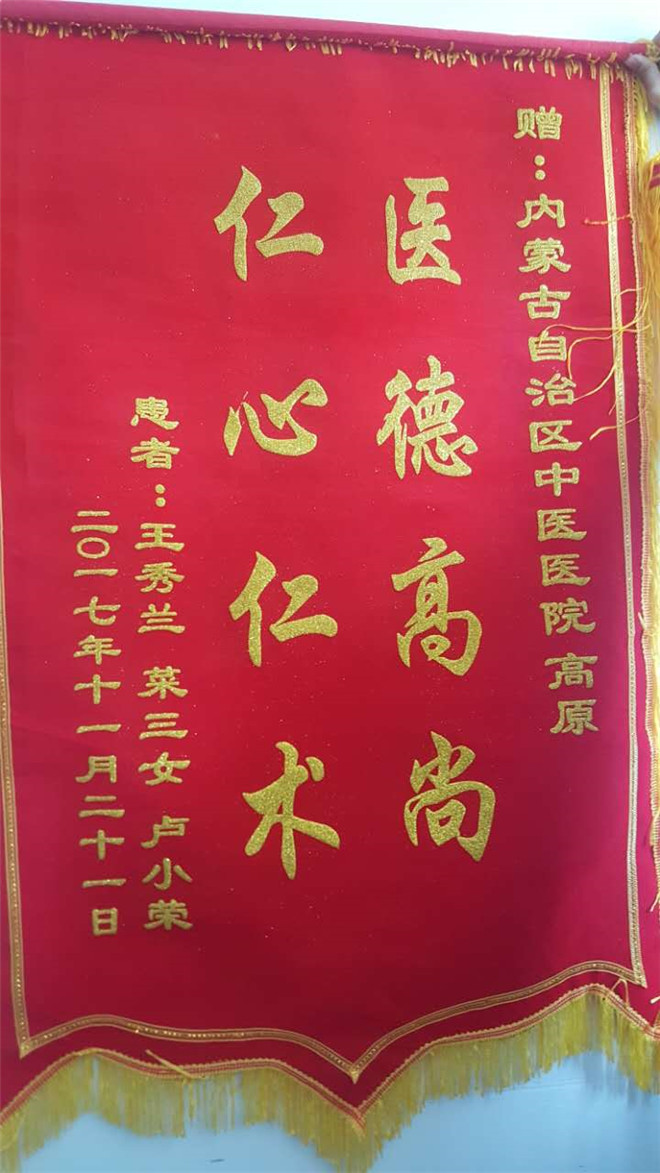 赠：内蒙古自治区中医医院 高原
医德高尚
仁心仁术
患者：王秀兰 菜三女 卢小荣
二〇一七年十一月二十一日